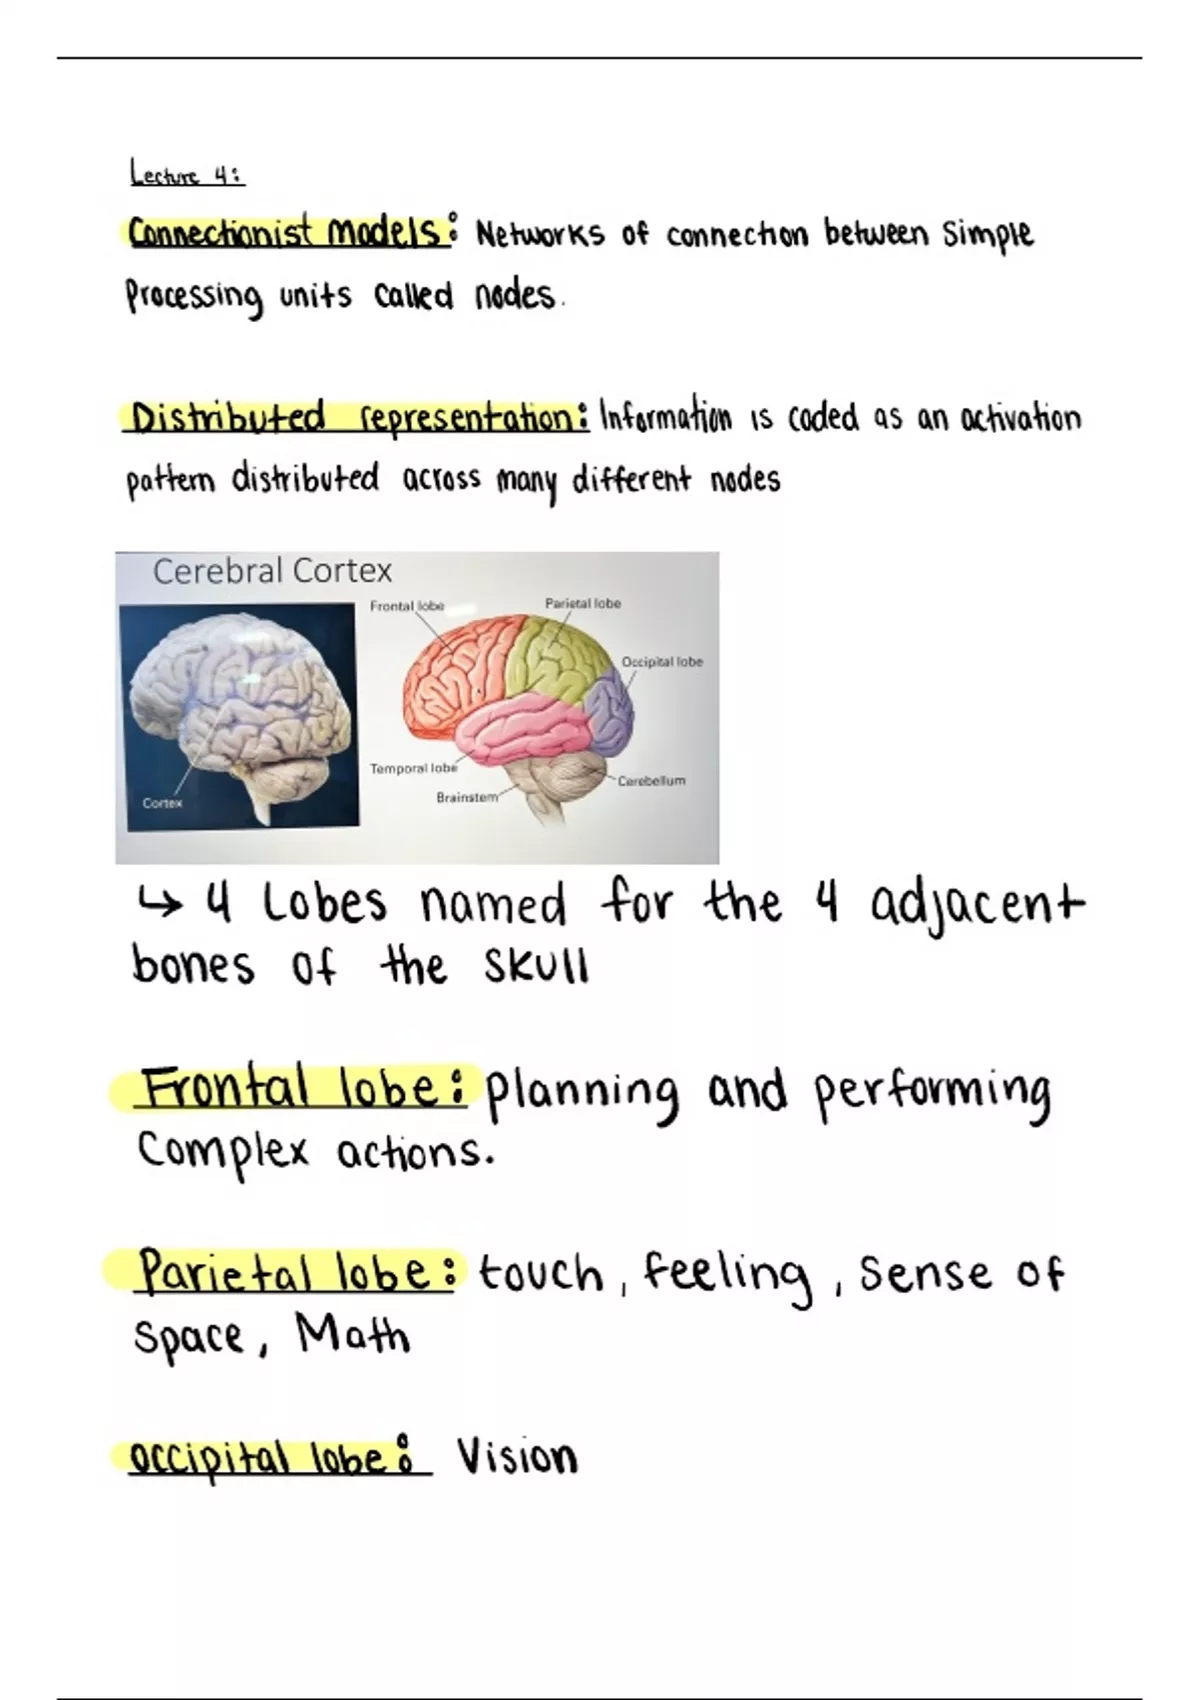 Lecture 4:
Connectionist models: Networks of connection between simple
Processing units called nodes.
Distributed representation: Information is coded as an activation
pattern distributed across many different nodes
Cerebral Cortex
Frontal lobe
Parietal lobe
Occipital lobe
Temporal lobe
Cerebellum
Brainstem
Cortex
↳ 4 Lobes named for the 4 adjacent
bones of the skull
Frontal lobe: planning and performing
Complex actions.
Parietal lobe: touch, feeling, sense of
space, Math
occipital lobe: Vision